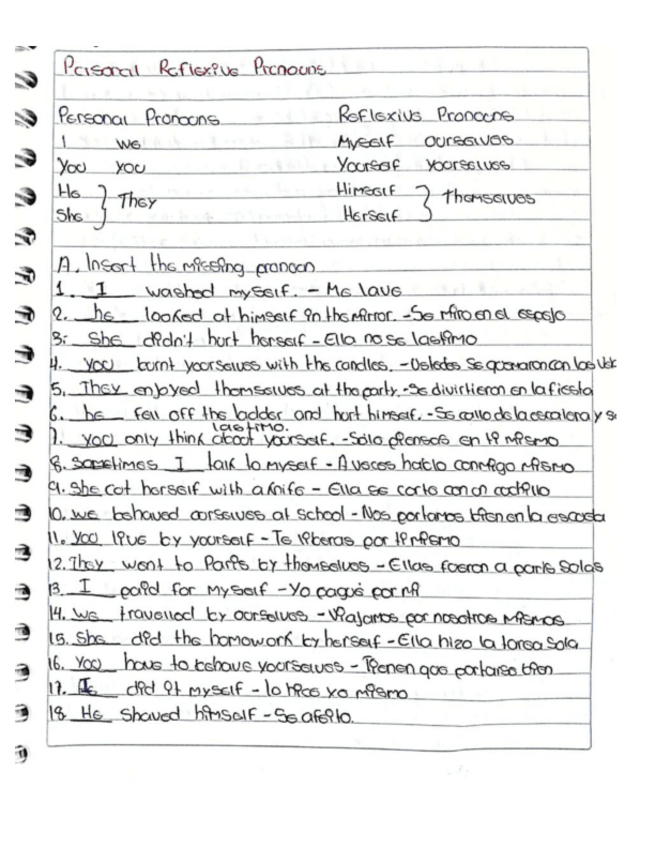 Personal Reflexive Pronouns
Personal Pronouns Reflexive Pronouns
I we Myself ourselves
You you Yourself yourselves
He } They Himself } Themselves
She Herself
A. Insert the missing pronoun
1. I washed myself. - Me lave
2. he looked at himself in the mirror. - Se miro en el espejo
3. She didn't hurt herself - Ella no se lastimo
4. you burnt yourselves with the candles. - Ustedes se quemaron con las
5. They enjoyed themselves at the party. - Se divirtieron en la fiesta
6. he fell off the ladder and hurt himself. - Se callo de la escalera y se
lastimo.
7. you only think about yourself. - Solo piensas en ti mismo
8. Sometimes I talk to myself - A veces hablo conmigo mismo
9. She cut herself with a knife - Ella se corto con un cuchillo
10. we behaved ourselves at school - Nos portamos bien en la escuela
11. you live by yourself - Te liberas por ti mismo
12. They went to Paris by themselves - Ellas fueron a paris solas
13. I paid for myself - Yo pague por mi
14. we travelled by ourselves - Viajamos por nosotros mismos
15. She did the homework by herself - Ella hizo la tarea sola
16. you have to behave yourselves - Tienen que portarse bien
17. I did it myself - lo hice yo mismo
18. He shaved himself - Se afeito.